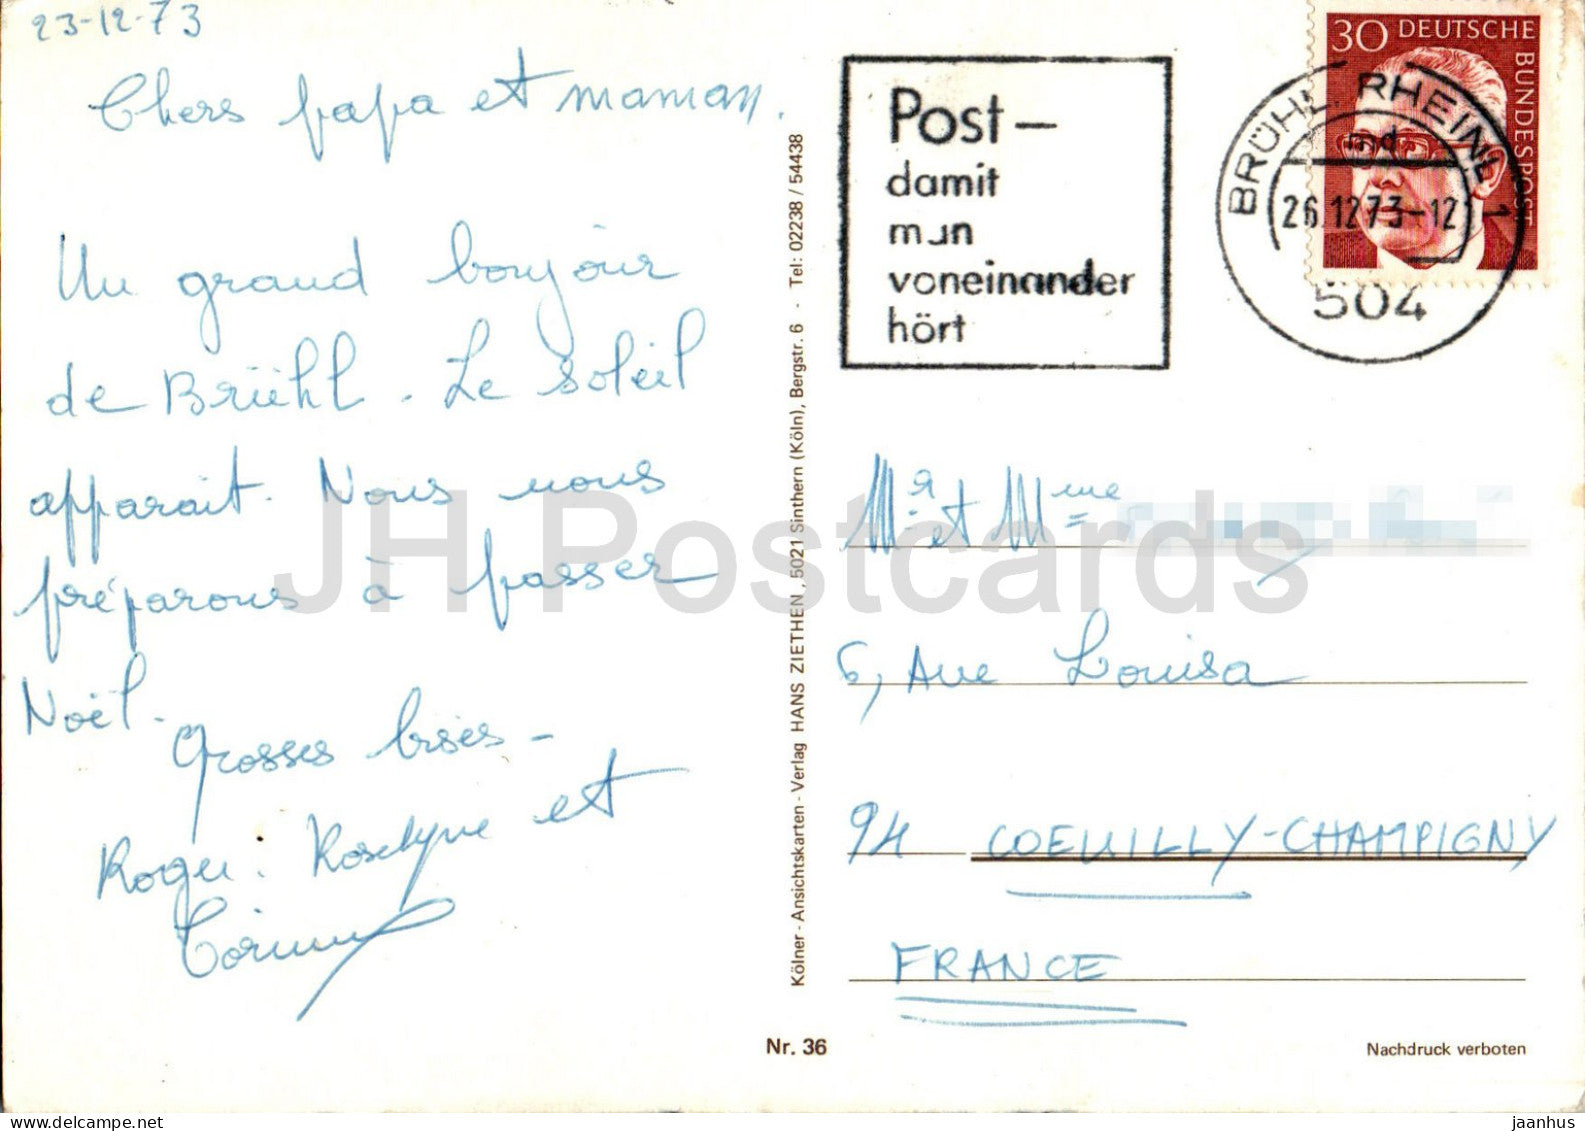 23-12-73
Chers papa et maman.
Un grand bonjour
de Brühl. Le soleil
apparait. Nous nous
préparons à passer
Noël.
Grosses bises -
Roger. Roselyne et
Corinne
Kölner - Ansichtskarten - Verlag HANS ZIETHEN , 5021 Sinthern (Köln), Bergstr. 6 · Tel: 02238 / 54438
Nr. 36
Post –
damit
man
voneinander
hört
30 DEUTSCHE
BUNDESPOST
BRÜHL, RHEINL 1
md
26.12.73-12
504
Mr et Mme
6, Ave Louisa
94 COEUILLY-CHAMPIGNY
FRANCE
Nachdruck verboten
JH Postcards
jaanhus
delcampe.net